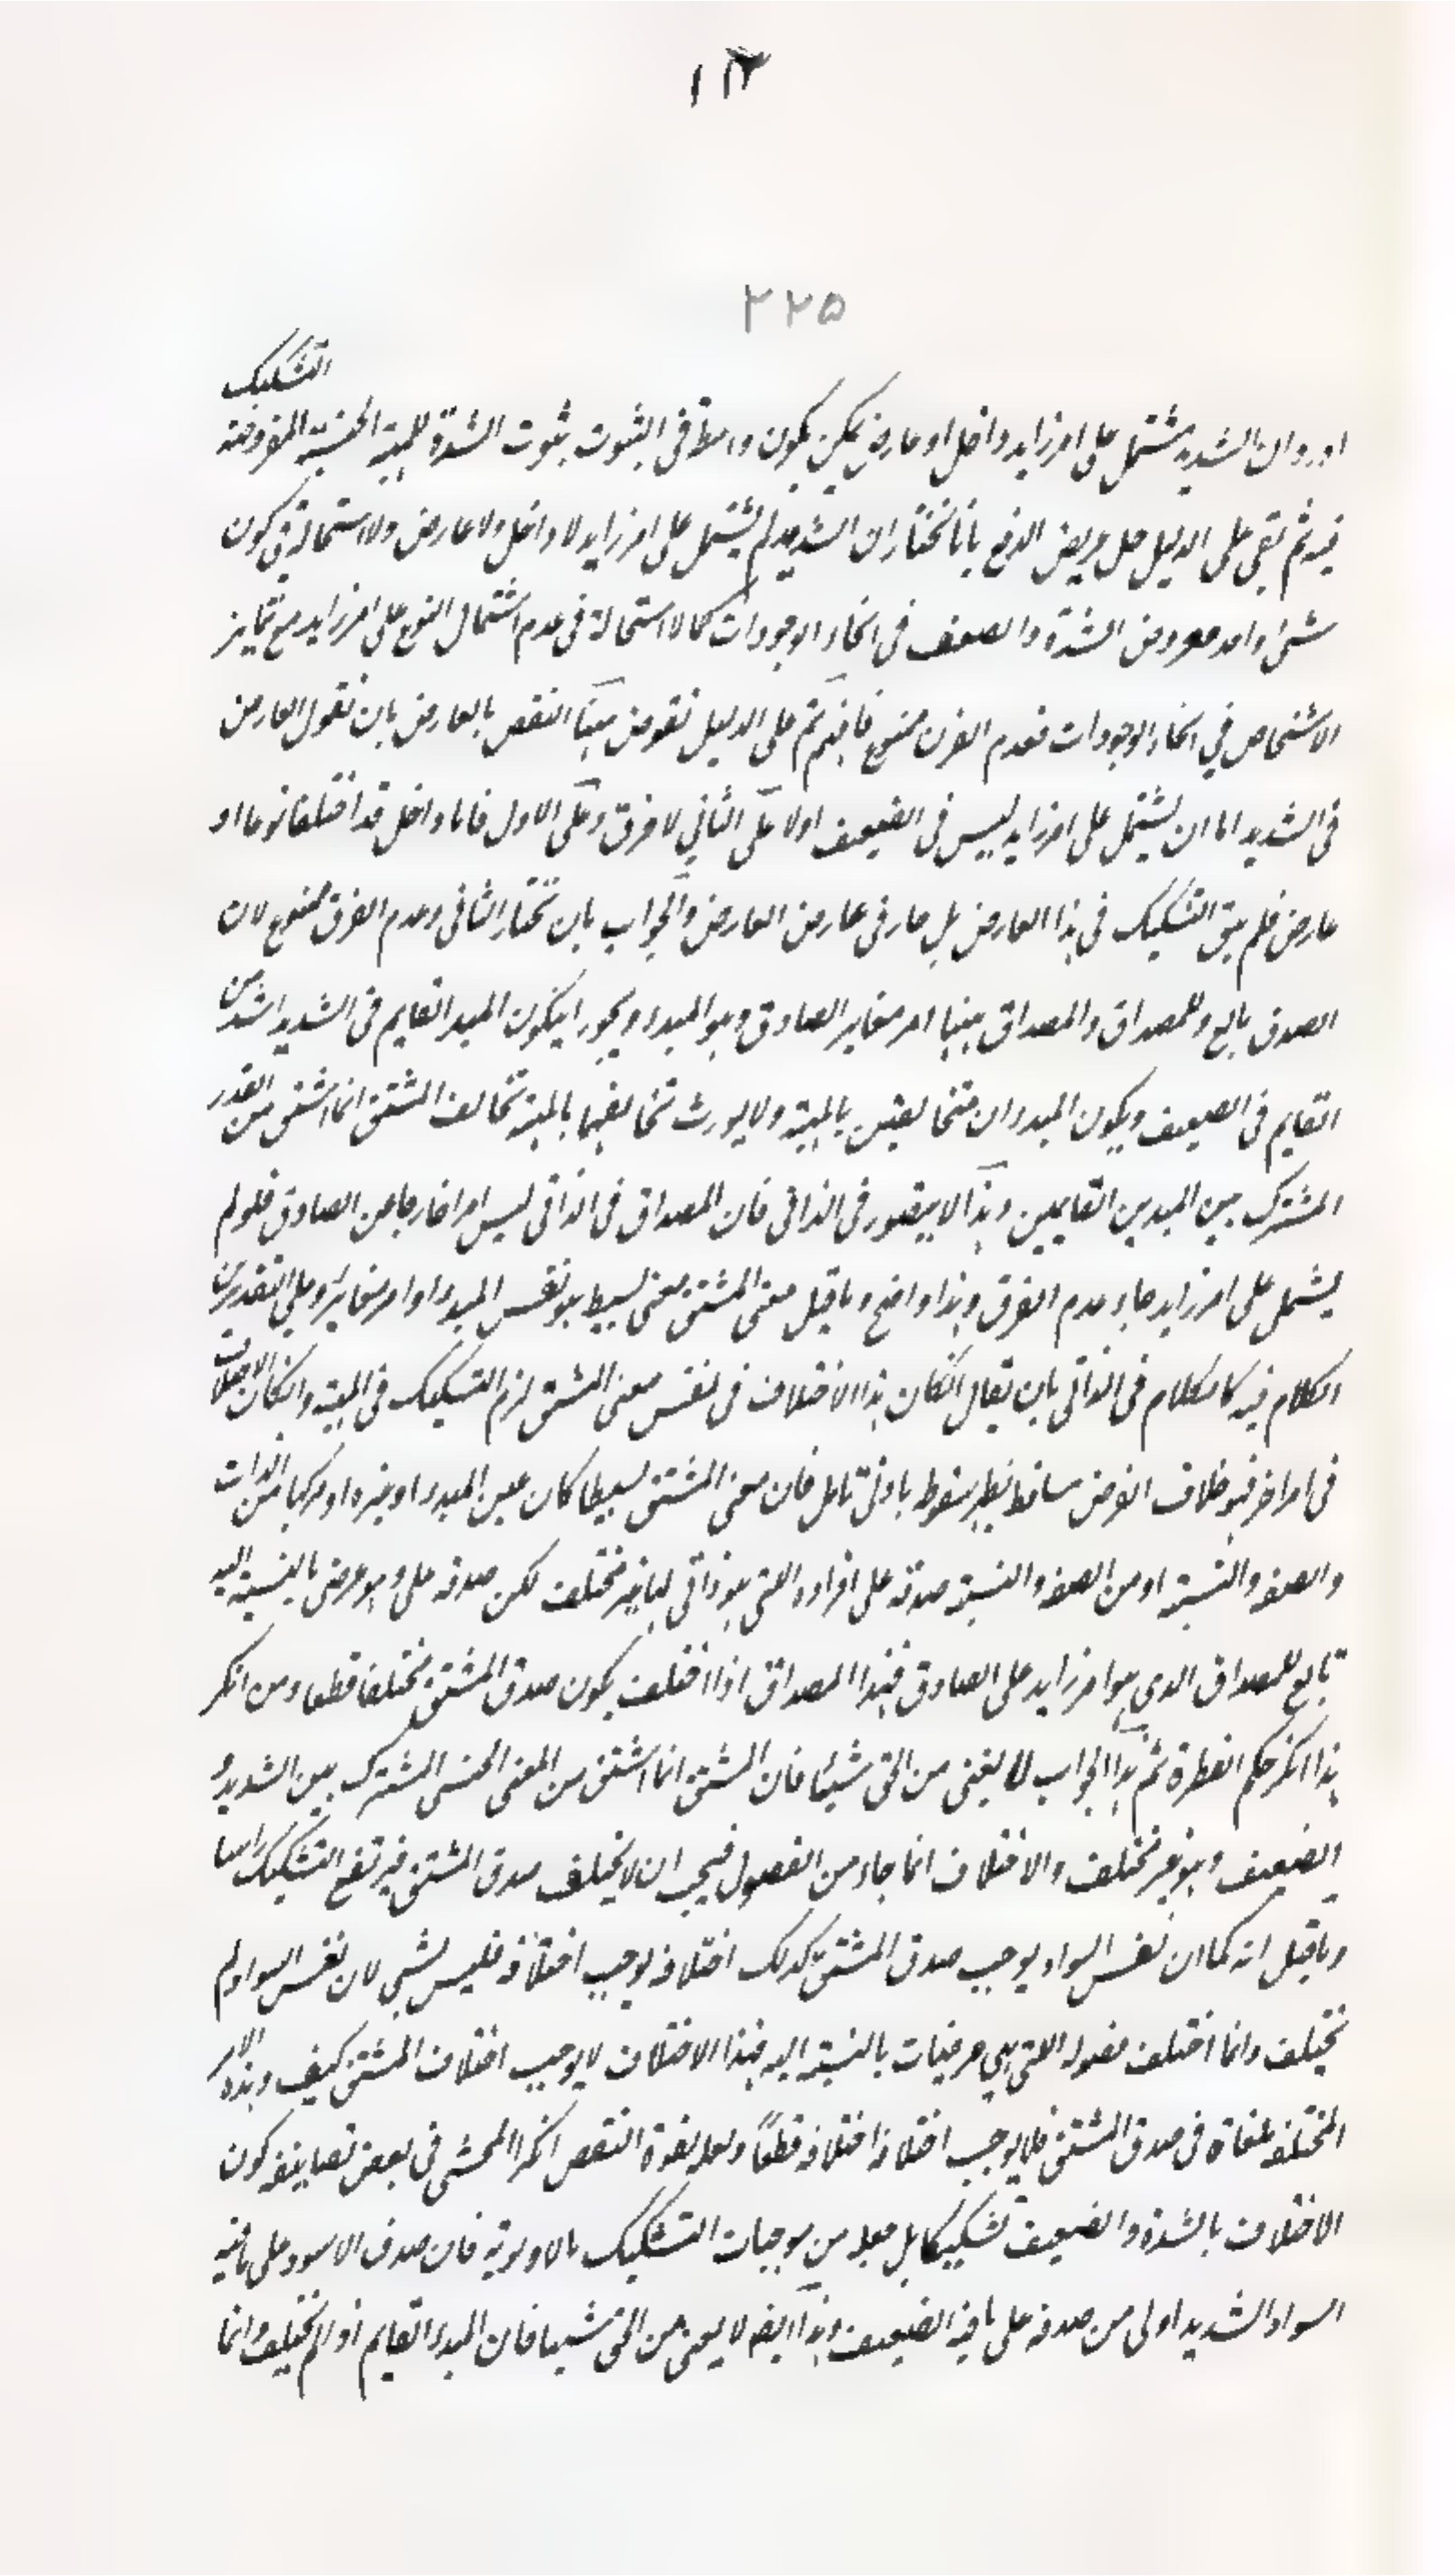 ١٢
٢٢٥
التشكيك
اورد ان الشديد مشتمل على امر زايد داخل او عارض يمكن يكون واسطة فى الثبوت بثبوت الشدة للمهية الجنسية المفروضة
فيه ثم بقى على الدليل حل عويص الدفع بانا نختار ان الشديد لم يشتمل على امر زايد لا داخل ولا عارض ولا استحالة فى كون
شئ واحد معروض الشدة والضعف فى انحاء الوجودات كما لا استحالة فى عدم اشتمال النوع على امر زايد مع تمايز
الاشخاص في انحاء الوجودات فعدم الفرق ممنوع فافهم ثم على الدليل نقوض منها النقض بالعارض بان نقول العارض
فى الشديد اما ان يشتمل على امر زايد ليس فى الضعيف اولا على الثاني لا فرق وعلى الاول فاما داخل قد اختلفا نوعا او
عارض فلم يبق التشكيك فى هذا العارض بل صار فى عارض العارض والجواب بان نختار الثانى وعدم الفرق ممنوع لان
الصدق تابع للمصداق والمصداق ههنا امر مغاير الصادق وهو المبدء ويجوز ايكون المبدا القايم فى الشديد اشد من
القايم فى الضعيف ويكون المبدءان متخالفين بالمهية ولا يورث تخالفهما بالمهية تخالف المشتق انما اشتق من القدر
المشترك بين المبدئين القايمين وهذا لا يتصور فى الذاتى فان المصداق فى الذاتى ليس امرا خارجا عن الصادق فلو لم
يشتمل على امر زايد جاء عدم الفرق وهذا واضح وما قيل معنى المشتق معنى بسيط هو نفس المبدء او امر مغاير وعلى التقديرين
الكلام فيه كالكلام فى الذاتى بان يقال انكان هذا الاختلاف فى نفس معنى المشتق لزم التشكيك فى المهية وانكان الاختلاف
فى امر اخر فهو خلاف الفرض ساقط يظهر سقوطه بادنى تامل فان معنى المشتق بسيطا كان عين المبدء او غيره او مركبا من الذات
والصفة والنسبة او من الصفة والنسبة صدقه على افراده التى هو ذاتى لها غير مختلف لكن صدقه على ما هو عرضى بالنسبة اليه
تابع للمصداق الذي هو امر زايد على الصادق فهذا المصداق اذا اختلف يكون صدق المشتق مختلفا قطعا ومن انكر
هذا انكر حكم الفطرة ثم هذا الجواب لا يغنى من الحق شيئا فان المشتق انما اشتق من المعنى الجنسى المشترك بين الشديد و
الضعيف وهو غير مختلف والاختلاف انما جاء من الفصول فيجب ان لا يختلف صدق المشتق فيرتفع التشكيك راسا
وما قيل انه كما ان نفس السواد يوجب صدق المشتق كذلك اختلافه يوجب اختلافه فليس بشئ لان نفس السواد لم
يختلف وانما اختلف فصوله التى هي عرضيات بالنسبة اليه فهذا الاختلاف لا يوجب اختلاف المشتق كيف وهذه الامور
المختلفة ملغاة فى صدق المشتق فلا يوجب اختلافها اختلافه قطعًا ولعله لقوة النقض انكر المحشى فى بعض تصانيفه كون
الاختلاف بالشدة والضعف تشكيكا بل جعله من موجبات التشكيك بالاولوية فان صدق الاسود على ما فيه
السواد الشديد اولى من صدقه على ما فيه الضعيف وهذا ايضا لا يغنى من الحق شيئا فان المبدء القايم اذ لم يختلف وانما